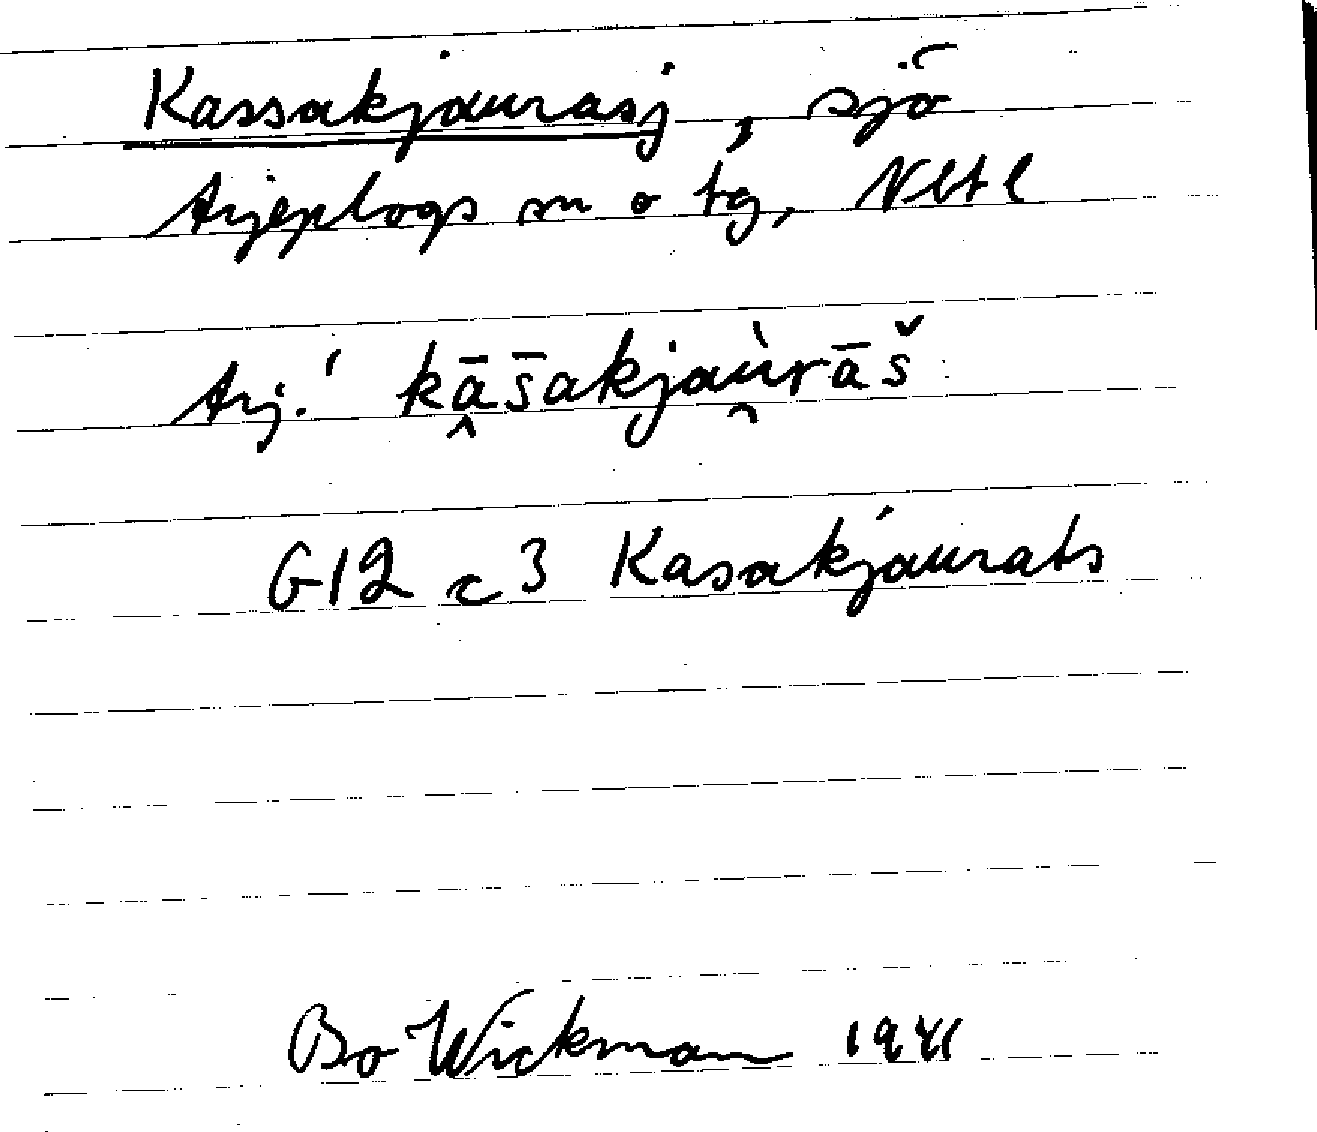 Kassakjaurasj, sjö
Arjeplogs sn o tg, Nltl
Arj.' kā̭s̄akjaù̯rāš
G12 c 3 Kasakjaurats
Bo Wickman 1941